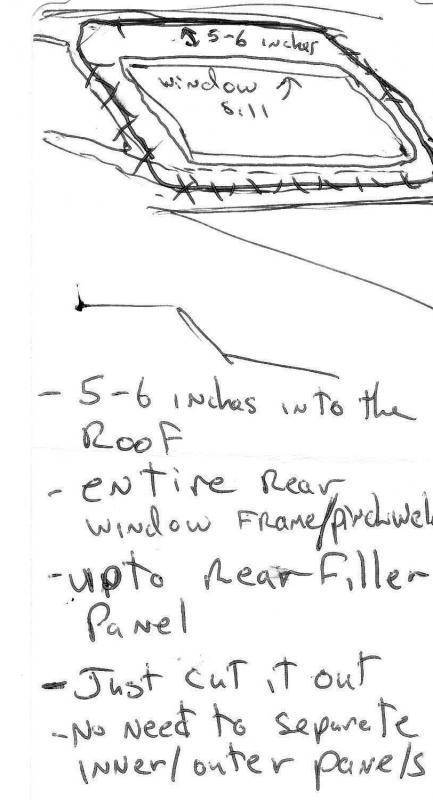 5-6 inches
window
sill
- 5-6 inches into the
Roof
- entire Rear
window Frame/pinchweld
- upto Rear Filler
Panel
- Just cut it out
- No Need to separate
inner/outer panels